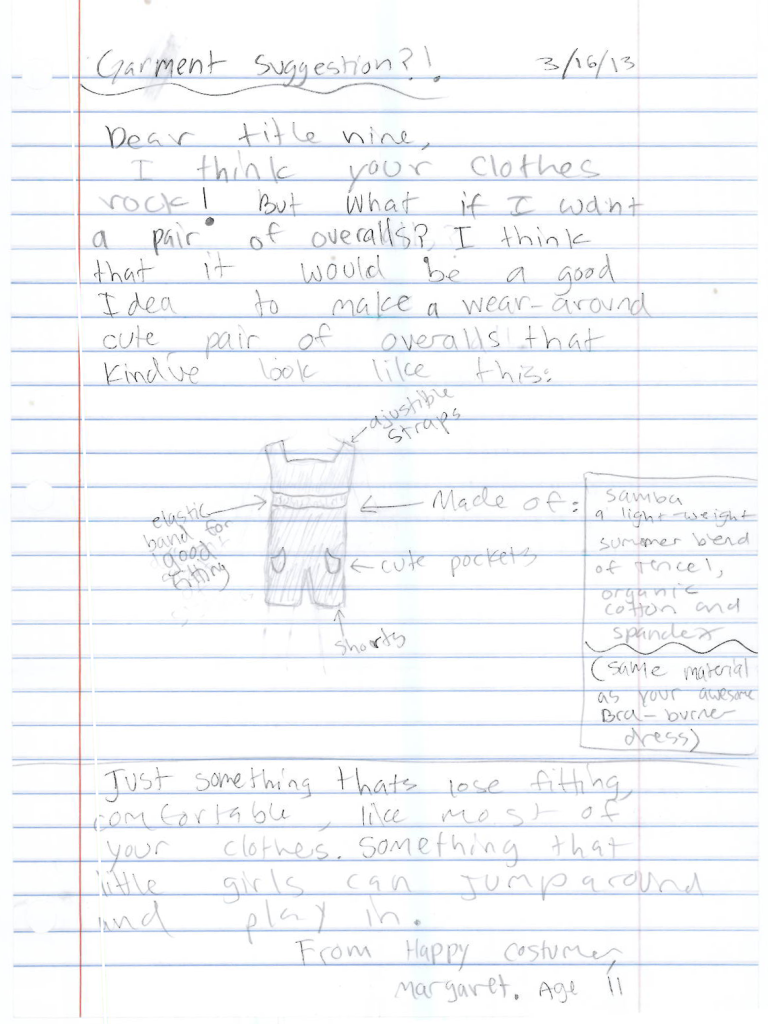 Garment Suggestion?! 3/16/13
Dear title nine,
I think your clothes
rock! But what if I want
a pair of overalls? I think
that it would be a good
Idea to make a wear-around
cute pair of overalls that
kindve look like this:
ajustible
straps
elastic
band for
good
fitting
Made of:
samba
a light-weight
summer blend
of Tencel,
organic
cotton and
spandex
(same material
as your awesome
Bra-burner
dress)
cute pockets
shorts
Just something thats lose fitting,
comfortable, like most of
your clothes. Something that
little girls can jump around
and play in.
From Happy costumer,
Margaret. Age 11